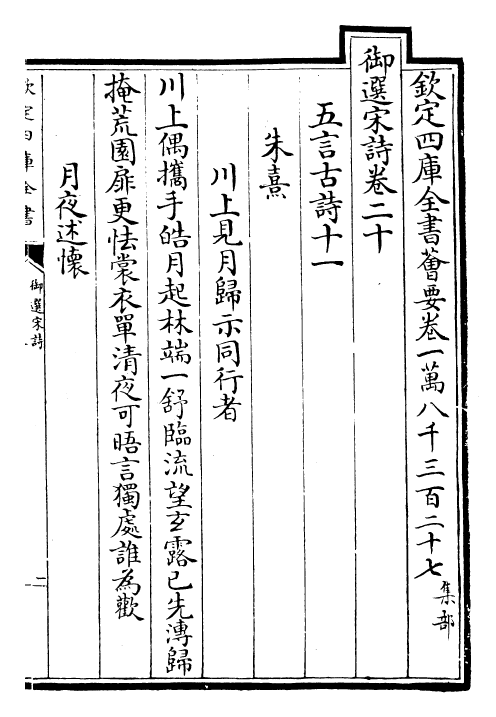 欽定四庫全書薈要卷一萬八千三百二十七集部
御選宋詩卷二十
五言古詩十一
朱熹
川上見月歸示同行者
川上偶攜手皓月起林端一舒臨流望玄露已先漙歸
掩荒園扉更怯裳衣單清夜可晤言獨處誰為歡
月夜述懷
欽定四庫全書
御選宋詩